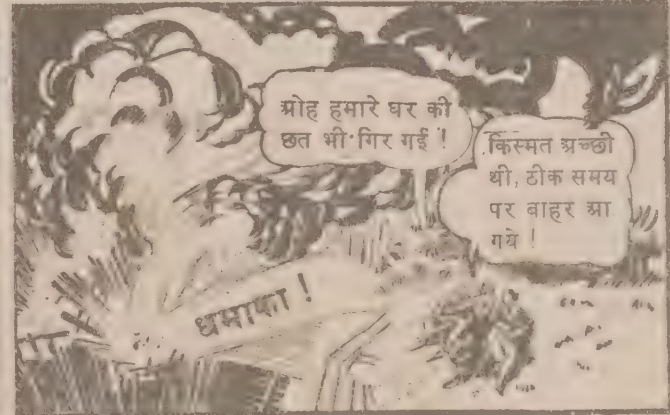 ओह हमारे घर की
छत भी गिर गई !
किस्मत अच्छी
थी, ठीक समय
पर बाहर आ
गये !
धमाका !